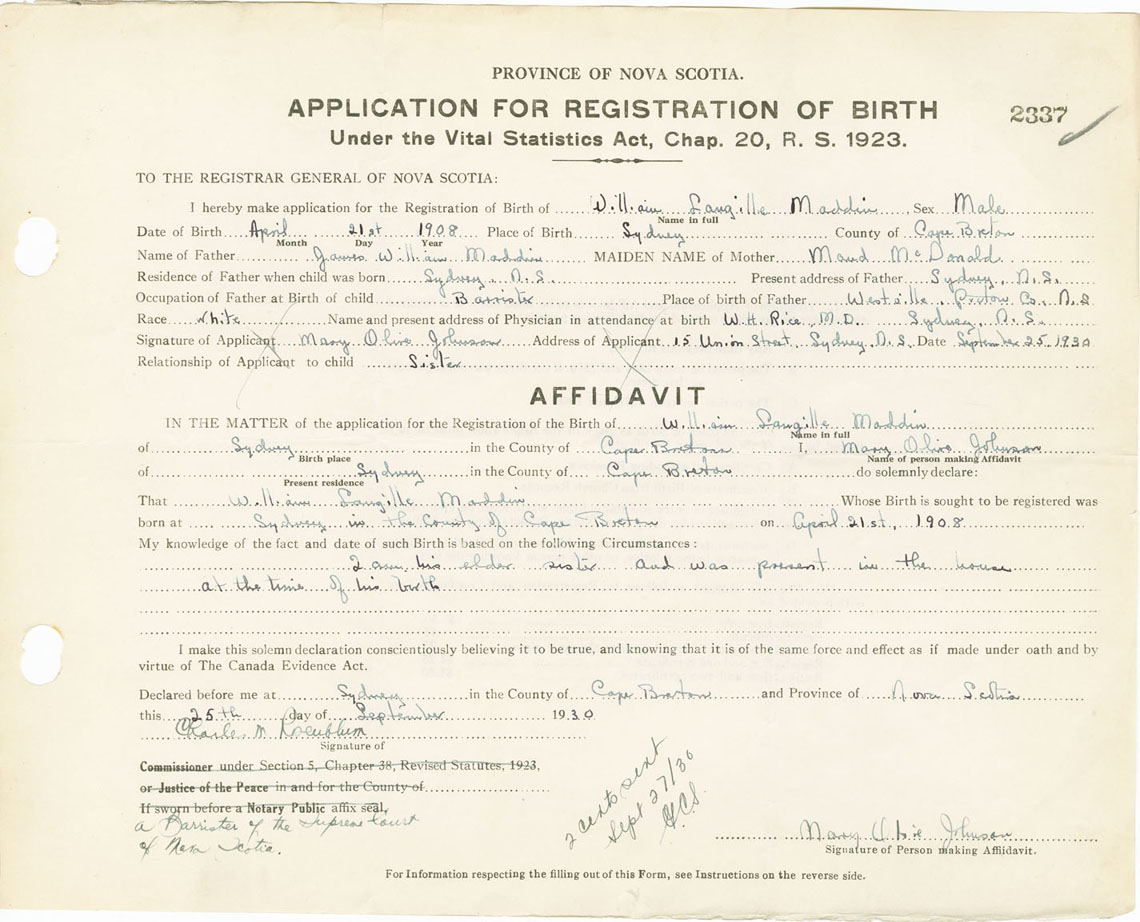 PROVINCE OF NOVA SCOTIA.
APPLICATION FOR REGISTRATION OF BIRTH
2337
Under the Vital Statistics Act, Chap. 20, R. S. 1923.
TO THE REGISTRAR GENERAL OF NOVA SCOTIA:
I hereby make application for the Registration of Birth of William Langille Maddin Sex Male
Name in full
Date of Birth April 21st 1908 Place of Birth Sydney County of Cape Breton
Month Day Year
Name of Father James William Maddin MAIDEN NAME of Mother Maud McDonald
Residence of Father when child was born Sydney, N.S. Present address of Father Sydney, N.S.
Occupation of Father at Birth of child Barrister Place of birth of Father Westville, Pictou Co., N.S
Race White Name and present address of Physician in attendance at birth W.H. Rice, M.D. Sydney, N.S.
Signature of Applicant Mary Olive Johnson Address of Applicant 15 Union Street, Sydney, N.S. Date September 25, 1930
Relationship of Applicant to child Sister
AFFIDAVIT
IN THE MATTER of the application for the Registration of the Birth of William Langille Maddin
Name in full
of Sydney in the County of Cape Breton I, Mary Olive Johnson
Birth place Name of person making Affidavit
of Sydney in the County of Cape Breton do solemnly declare:
Present residence
That William Langille Maddin Whose Birth is sought to be registered was
born at Sydney in the County of Cape Breton on April 21st, 1908
My knowledge of the fact and date of such Birth is based on the following Circumstances:
I am his elder sister and was present in the house
at the time of his birth
I make this solemn declaration conscientiously believing it to be true, and knowing that it is of the same force and effect as if made under oath and by
virtue of The Canada Evidence Act.
Declared before me at Sydney in the County of Cape Breton and Province of Nova Scotia
this 25th day of September 1930
Charles M Rosenblum
Signature of
Commissioner under Section 5, Chapter 38, Revised Statutes, 1923,
or Justice of the Peace in and for the County of
If sworn before a Notary Public affix seal,
a Barrister of the Supreme Court
of Nova Scotia.
2 cents sent
Sept 27/30
Mary Olive Johnson
Signature of Person making Affidavit.
For Information respecting the filling out of this Form, see Instructions on the reverse side.